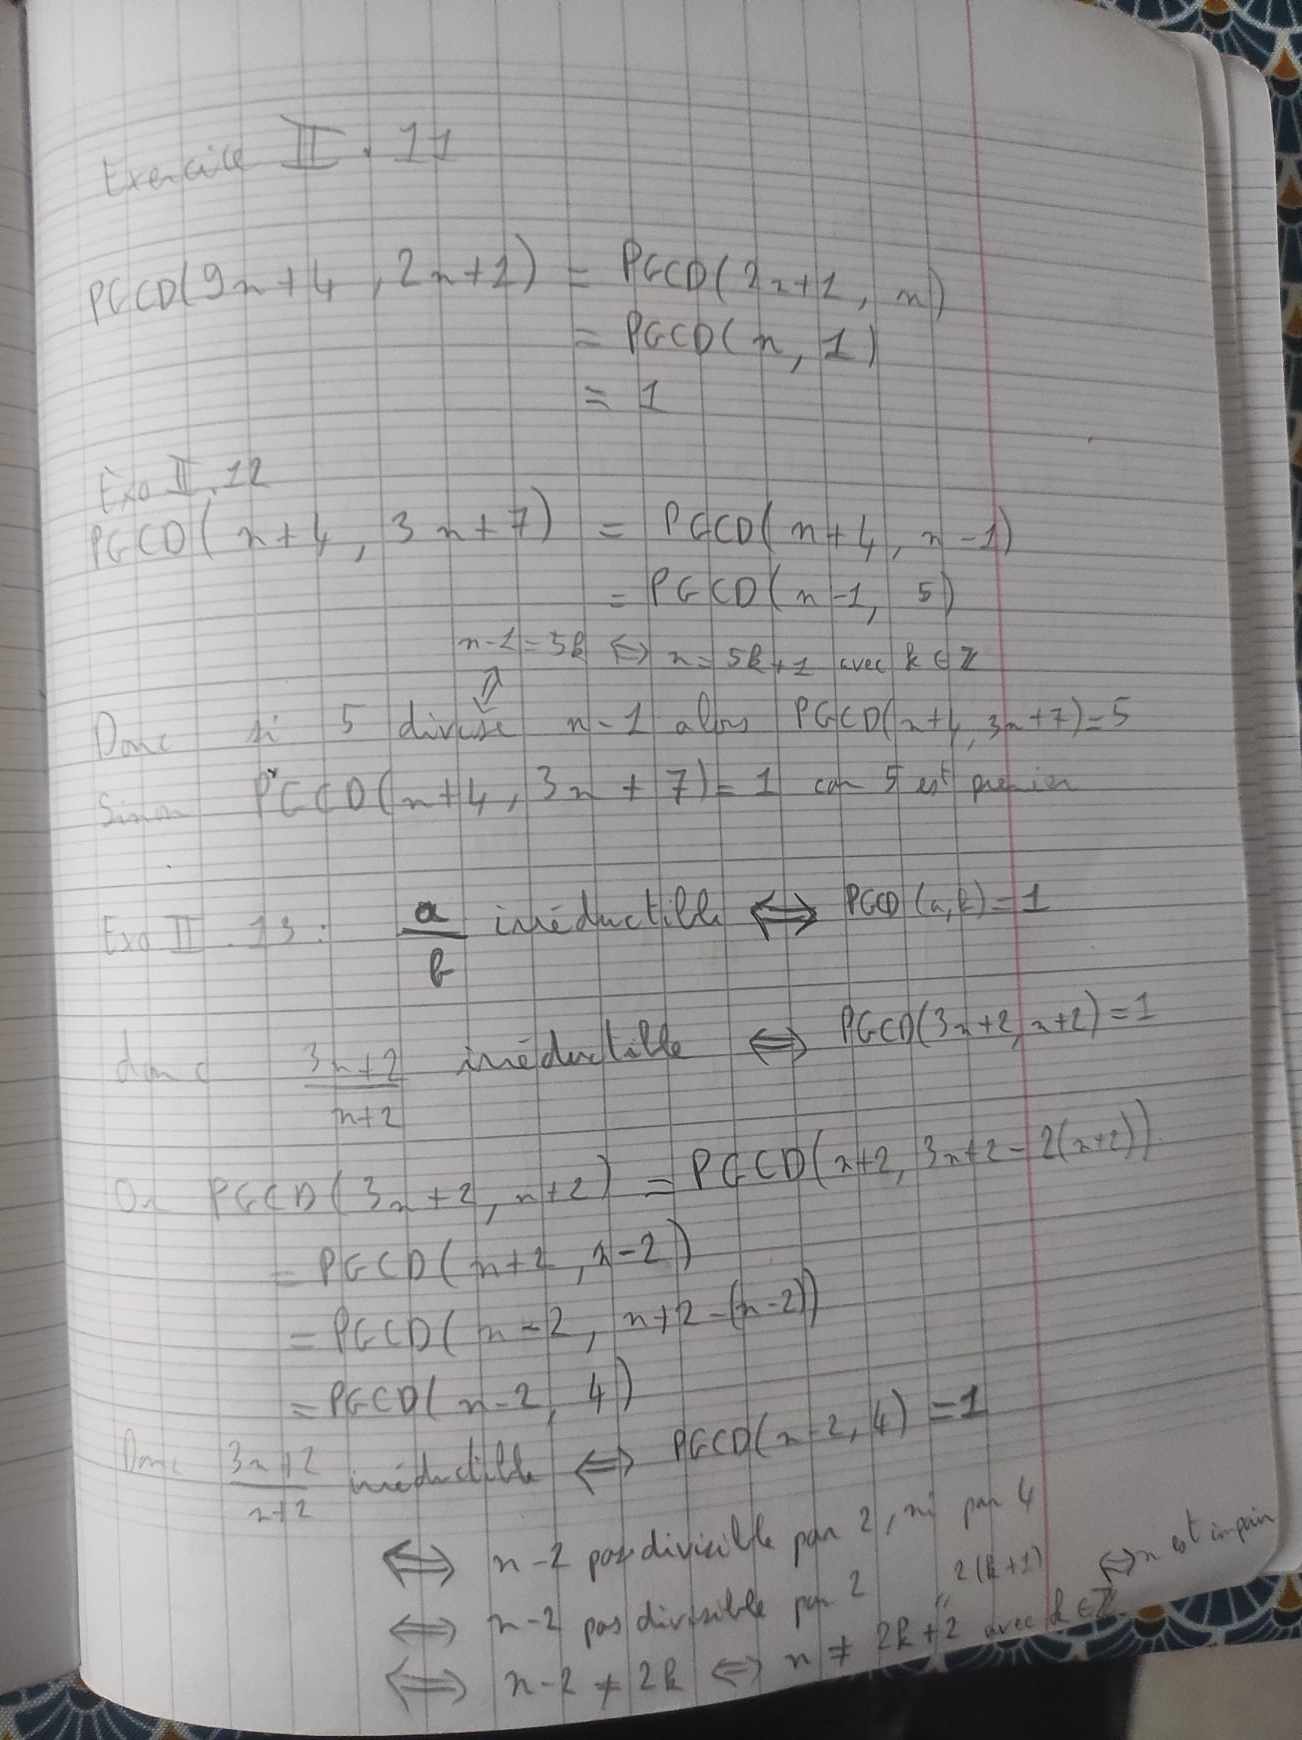 Exercice II.11
PGCD(9n+4, 2n+1) = PGCD(2n+1, n)
= PGCD(n, 1)
= 1
Exo II.12
PGCD(n+4, 3n+7) = PGCD(n+4, n-1)
= PGCD(n-1, 5)
n-1=5k ⇔ n=5k+1 avec k∈ℤ
⇕
Donc si 5 divise n-1 alors PGCD(n+4, 3n+7)=5
Sinon PGCD(n+4, 3n+7)=1 car 5 est premier
Exo II.13: a/b irréductible ⇔ PGCD(a,b)=1
donc (3n+2)/(n+2) irréductible ⇔ PGCD(3n+2, n+2)=1
Or PGCD(3n+2, n+2) = PGCD(n+2, 3n+2-2(n+2))
= PGCD(n+2, n-2)
= PGCD(n-2, n+2-(n-2))
= PGCD(n-2, 4)
Donc (3n+2)/(n+2) irréductible ⇔ PGCD(n-2, 4)=1
⇔ n-2 pas divisible par 2, ni par 4
⇔ n-2 pas divisible par 2
2(k+1)
"
⇔ n-2 ≠ 2k ⇔ n ≠ 2k+2 avec k∈ℤ. ⇔ n est impair